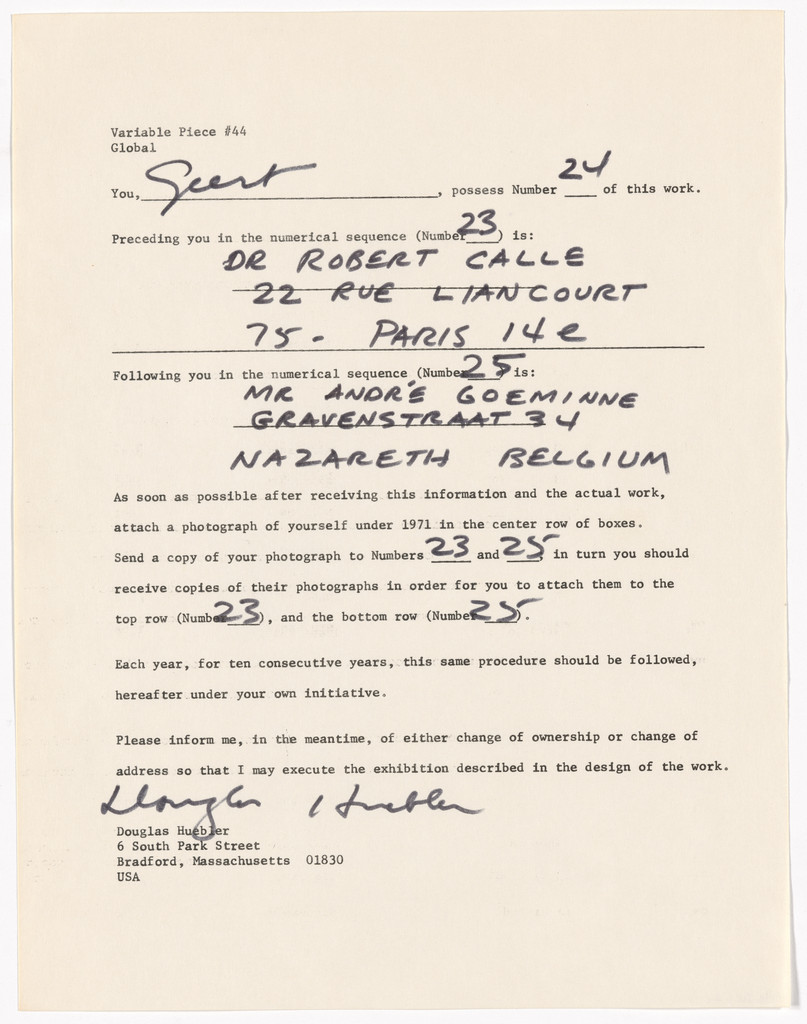 Variable Piece #44
Global
You, Geert, possess Number 24 of this work.
Preceding you in the numerical sequence (Number 23) is:
DR ROBERT CALLE
22 RUE LIANCOURT
75 - PARIS 14e
Following you in the numerical sequence (Number 25) is:
MR ANDRÉ GOEMINNE
GRAVENSTRAAT 34
NAZARETH BELGIUM
As soon as possible after receiving this information and the actual work,
attach a photograph of yourself under 1971 in the center row of boxes.
Send a copy of your photograph to Numbers 23 and 25, in turn you should
receive copies of their photographs in order for you to attach them to the
top row (Number 23), and the bottom row (Number 25).
Each year, for ten consecutive years, this same procedure should be followed,
hereafter under your own initiative.
Please inform me, in the meantime, of either change of ownership or change of
address so that I may execute the exhibition described in the design of the work.
Douglas Huebler
Douglas Huebler
6 South Park Street
Bradford, Massachusetts 01830
USA